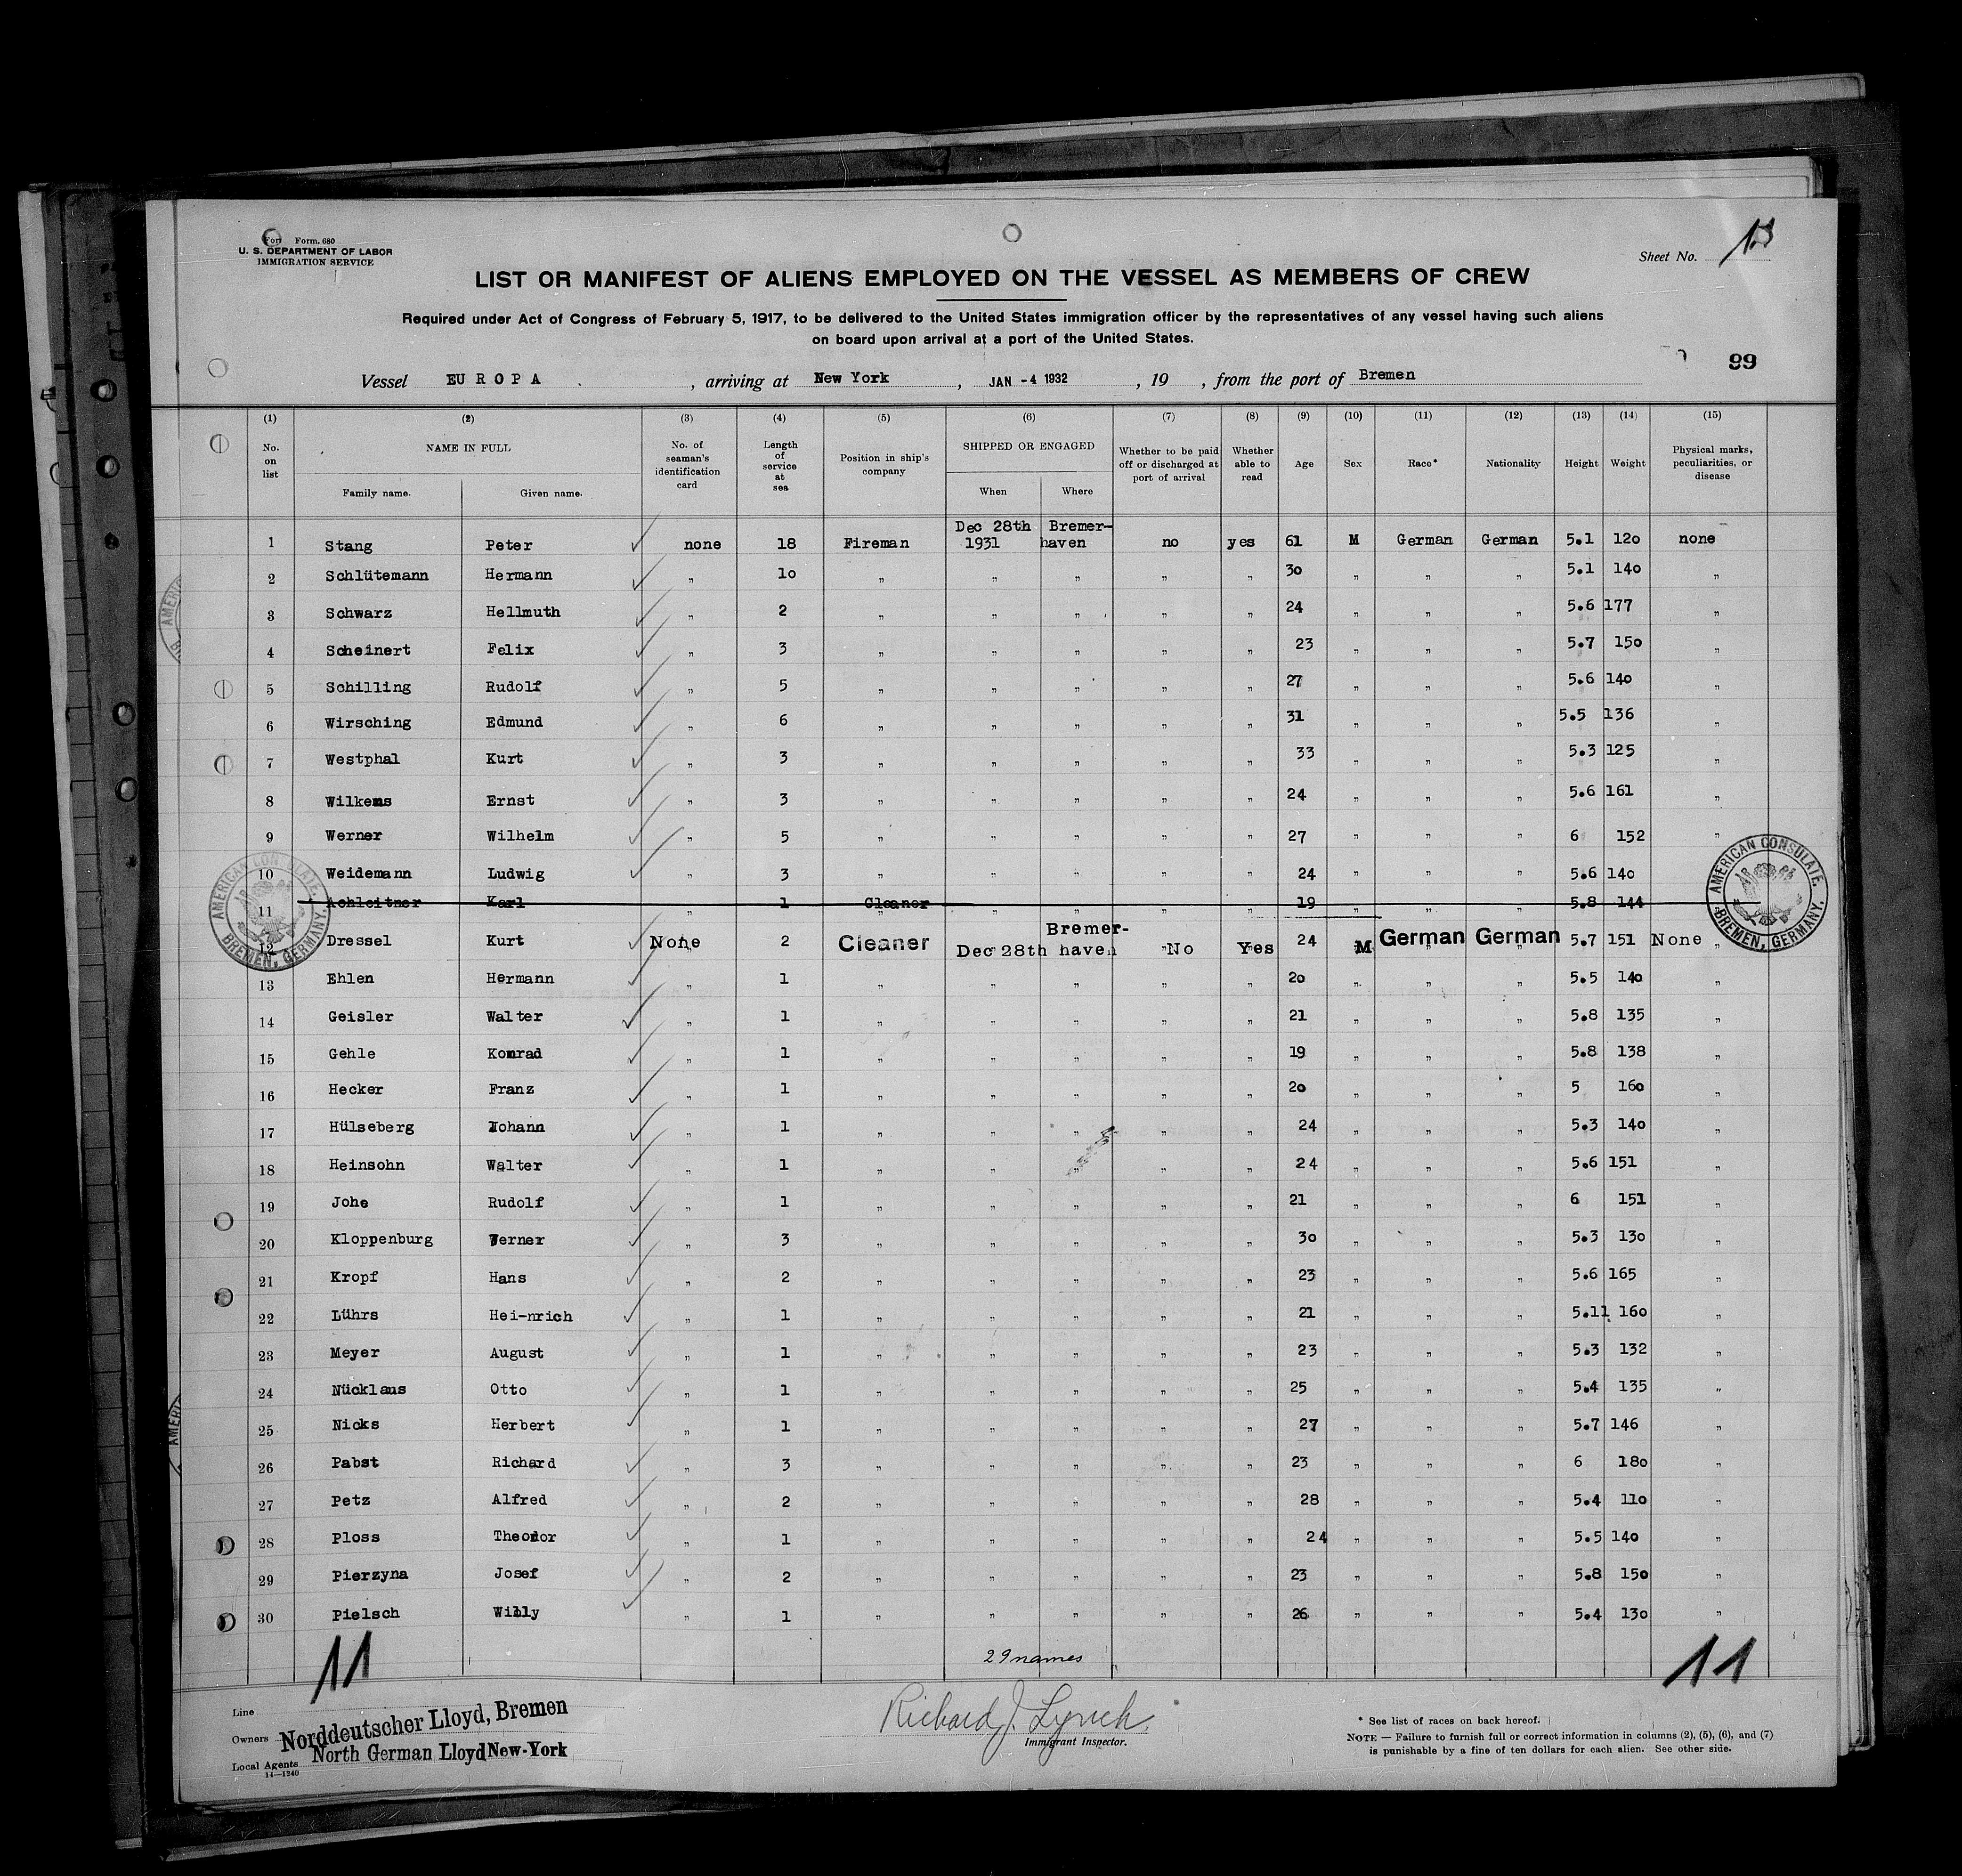 Form. 680
U. S. DEPARTMENT OF LABOR
IMMIGRATION SERVICE
Sheet No.
LIST OR MANIFEST OF ALIENS EMPLOYED ON THE VESSEL AS MEMBERS OF CREW
Required under Act of Congress of February 5, 1917, to be delivered to the United States immigration officer by the representatives of any vessel having such aliens
on board upon arrival at a port of the United States.
99
Vessel EUROPA , arriving at New York , JAN -4 1932 , 19 , from the port of Bremen
(1) (2) (3) (4) (5) (6) (7) (8) (9) (10) (11) (12) (13) (14) (15)
No. on list NAME IN FULL Family name. Given name. No. of seaman's identification card Length of service at sea Position in ship's company SHIPPED OR ENGAGED When Where Whether to be paid off or discharged at port of arrival Whether able to read Age Sex Race* Nationality Height Weight Physical marks, peculiarities, or disease
Dec 28th Bremer-
1 Stang Peter none 18 Fireman 1931 haven no yes 61 M German German 5.1 120 none
2 Schlütemann Hermann " 10 " " " " " 30 " " " 5.1 140 "
3 Schwarz Hellmuth " 2 " " " " " 24 " " " 5.6 177 "
4 Scheinert Felix " 3 " " " " " 23 " " " 5.7 150 "
5 Schilling Rudolf " 5 " " " " " 27 " " " 5.6 140 "
6 Wirsching Edmund " 6 " " " " " 31 " " " 5.5 136 "
7 Westphal Kurt " 3 " " " " " 33 " " " 5.3 125 "
8 Wilkens Ernst " 3 " " " " " 24 " " " 5.6 161 "
9 Werner Wilhelm " 5 " " " " " 27 " " " 6 152 "
10 Weidemann Ludwig " 3 " " " " " 24 " " " 5.6 140 "
11 Achleitner Karl " 1 Cleaner " " " " 19 " " " 5.8 144
Bremer-
12 Dressel Kurt None 2 Cleaner Dec 28th haven No Yes 24 M German German 5.7 151 None "
13 Ehlen Hermann " 1 " " " " " 20 " " " 5.5 140 "
14 Geisler Walter " 1 " " " " " 21 " " " 5.8 135 "
15 Gehle Konrad " 1 " " " " " 19 " " " 5.8 138 "
16 Hecker Franz " 1 " " " " " 20 " " " 5 160 "
17 Hülseberg Johann " 1 " " " " " 24 " " " 5.3 140 "
18 Heinsohn Walter " 1 " " " " " 24 " " " 5.6 151 "
19 Johe Rudolf " 1 " " " " " 21 " " " 6 151 "
20 Kloppenburg Werner " 3 " " " " " 30 " " " 5.3 130 "
21 Kropf Hans " 2 " " " " " 23 " " " 5.6 165 "
22 Lührs Hei-nrich " 1 " " " " " 21 " " " 5.11 160 "
23 Meyer August " 1 " " " " " 23 " " " 5.3 132 "
24 Nücklaus Otto " 1 " " " " " 25 " " " 5.4 135 "
25 Nicks Herbert " 1 " " " " " 27 " " " 5.7 146 "
26 Pabst Richard " 3 " " " " " 23 " " " 6 180 "
27 Petz Alfred " 2 " " " " " 28 " " " 5.4 110 "
28 Ploss Theodor " 1 " " " " " 24 " " " 5.5 140 "
29 Pierzyna Josef " 2 " " " " " 23 " " " 5.8 150 "
30 Pielsch Willy " 1 " " " " " 26 " " " 5.4 130 "
AMERICAN CONSULATE. BREMEN, GERMANY.
AMERICAN CONSULATE. BREMEN, GERMANY.
29 names
11
11
Line
Owners Norddeutscher Lloyd, Bremen
Local Agents North German Lloyd New-York
14—1240
Richard J. Lynch
Immigrant Inspector.
* See list of races on back hereof.
NOTE — Failure to furnish full or correct information in columns (2), (5), (6), and (7)
is punishable by a fine of ten dollars for each alien. See other side.